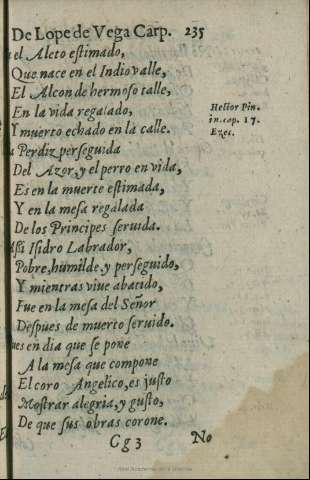 De Lope de Vega Carp. 235
el Aleto estimado,
Que nace en el Indio valle,
El Alcon de hermoso talle,
En la vida regalado,
Y muerto echado en la calle.
Hector Pin.
in cap. 17.
Ezec.
Perdiz perseguida
Del Azor, y el perro en vida,
Es en la muerte estimada,
Y en la mesa regalada
De los Principes seruida.
Assi Isidro Labrador,
Pobre, humilde, y perseguido,
Y mientras viue abatido,
Fue en la mesa del Señor
Despues de muerto seruido.
ues en dia que se pone
A la mesa que compone
El coro Angelico, es justo
Mostrar alegria, y gusto,
De que sus obras corone.
Gg3 No